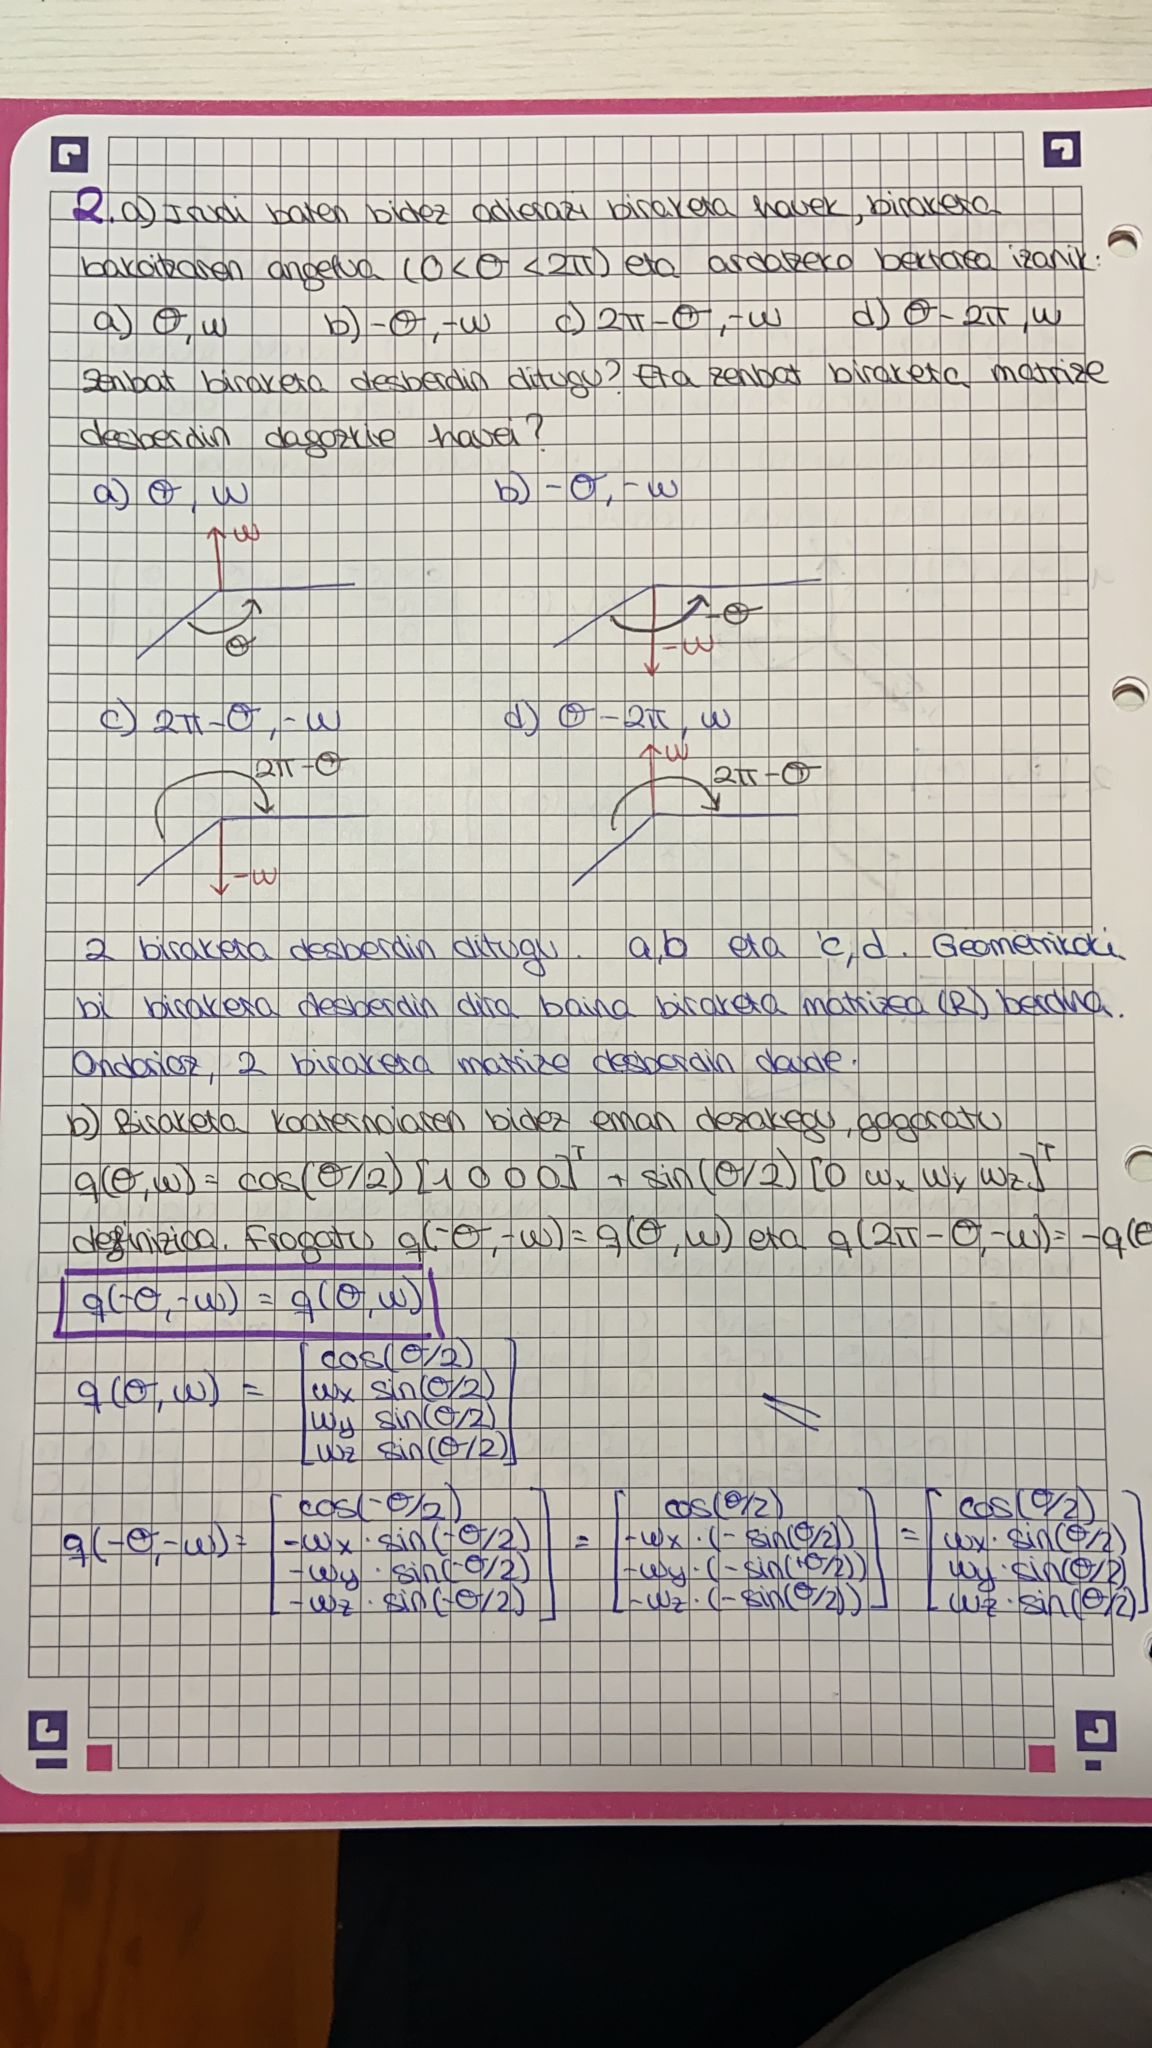 2. a) Irudi baten bidez adierazi biraketa hauek, biraketa
bakoitzaren angelua (0 < θ < 2π) eta ardatzeko bektorea izanik:
a) θ, w b) -θ, -w c) 2π-θ, -w d) θ-2π, w
Zenbat biraketa desberdin ditugu? Eta zenbat biraketa matrize
desberdin dagozkie hauei?
a) θ, w b) -θ, -w
w
θ
-θ
-w
c) 2π-θ, -w d) θ-2π, w
2π-θ
-w
w
2π-θ
2 biraketa desberdin ditugu. a,b eta c,d. Geometrikoki
bi biraketa desberdin dira baina biraketa matrizea (R) berdina.
Ondorioz, 2 biraketa matrize desberdin daude.
b) Biraketa koaternoiaren bidez eman dezakegu, gogoratu
q(θ,w) = cos(θ/2) [1 0 0 0]ᵀ + sin(θ/2) [0 wx wy wz]ᵀ
definizioa. Frogatu q(-θ,-w) = q(θ,w) eta q(2π-θ,-w) = -q(θ
q(-θ,-w) = q(θ,w)
q(θ,w) = [cos(θ/2)
wx sin(θ/2)
wy sin(θ/2)
wz sin(θ/2)]
q(-θ,-w) = [cos(-θ/2) = [cos(θ/2) = [cos(θ/2)
-wx · sin(-θ/2) -wx · (-sin(θ/2)) wx · sin(θ/2)
-wy · sin(-θ/2) -wy · (-sin(θ/2)) wy · sin(θ/2)
-wz · sin(-θ/2)] -wz · (-sin(θ/2))] wz · sin(θ/2)]